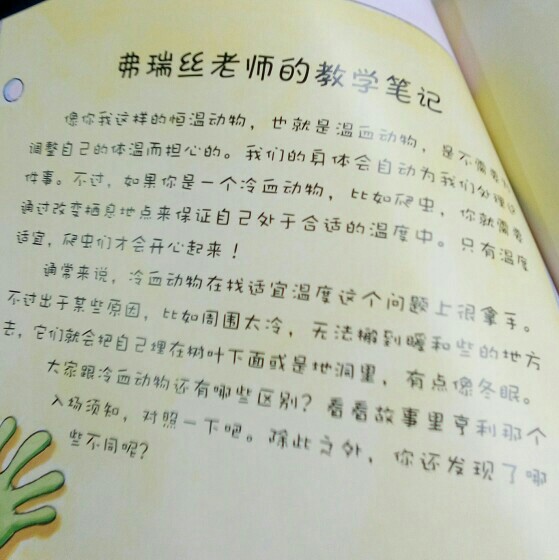 弗瑞丝老师的教学笔记
像你我这样的恒温动物，也就是温血动物，是不需要为
调整自己的体温而担心的。我们的身体会自动为我们处理这
件事。不过，如果你是一个冷血动物，比如爬虫，你就需要
通过改变栖息地点来保证自己处于合适的温度中。只有温度
适宜，爬虫们才会开心起来！
通常来说，冷血动物在找适宜温度这个问题上很拿手。
不过出于某些原因，比如周围太冷，无法搬到暖和些的地方
去，它们就会把自己埋在树叶下面或是地洞里，有点像冬眠。
大家跟冷血动物还有哪些区别？看看故事里亨利那个
入场须知，对照一下吧。除此之外，你还发现了哪
些不同呢？